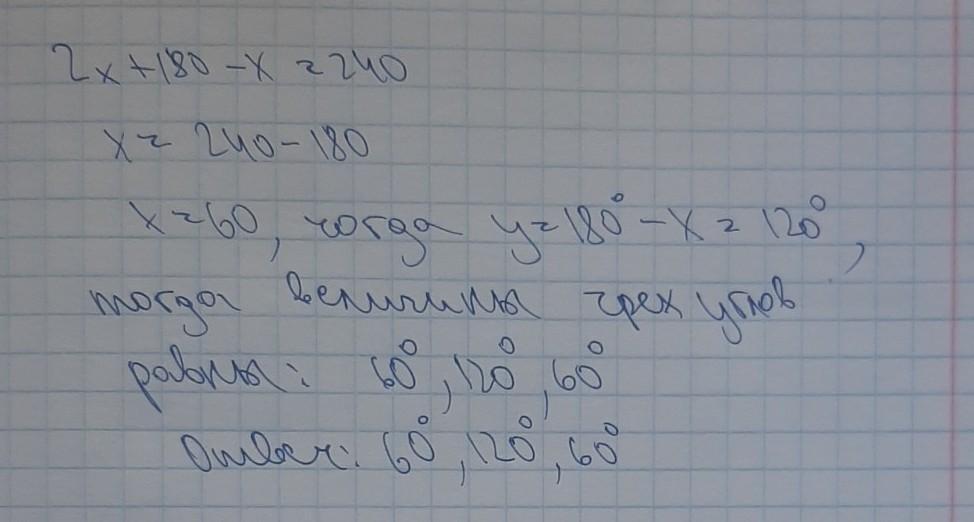 2x+180-x=240
x=240-180
x=60, тогда y=180°-x=120°,
тогда величины трех углов
равны: 60°, 120°, 60°
Ответ: 60°, 120°, 60°